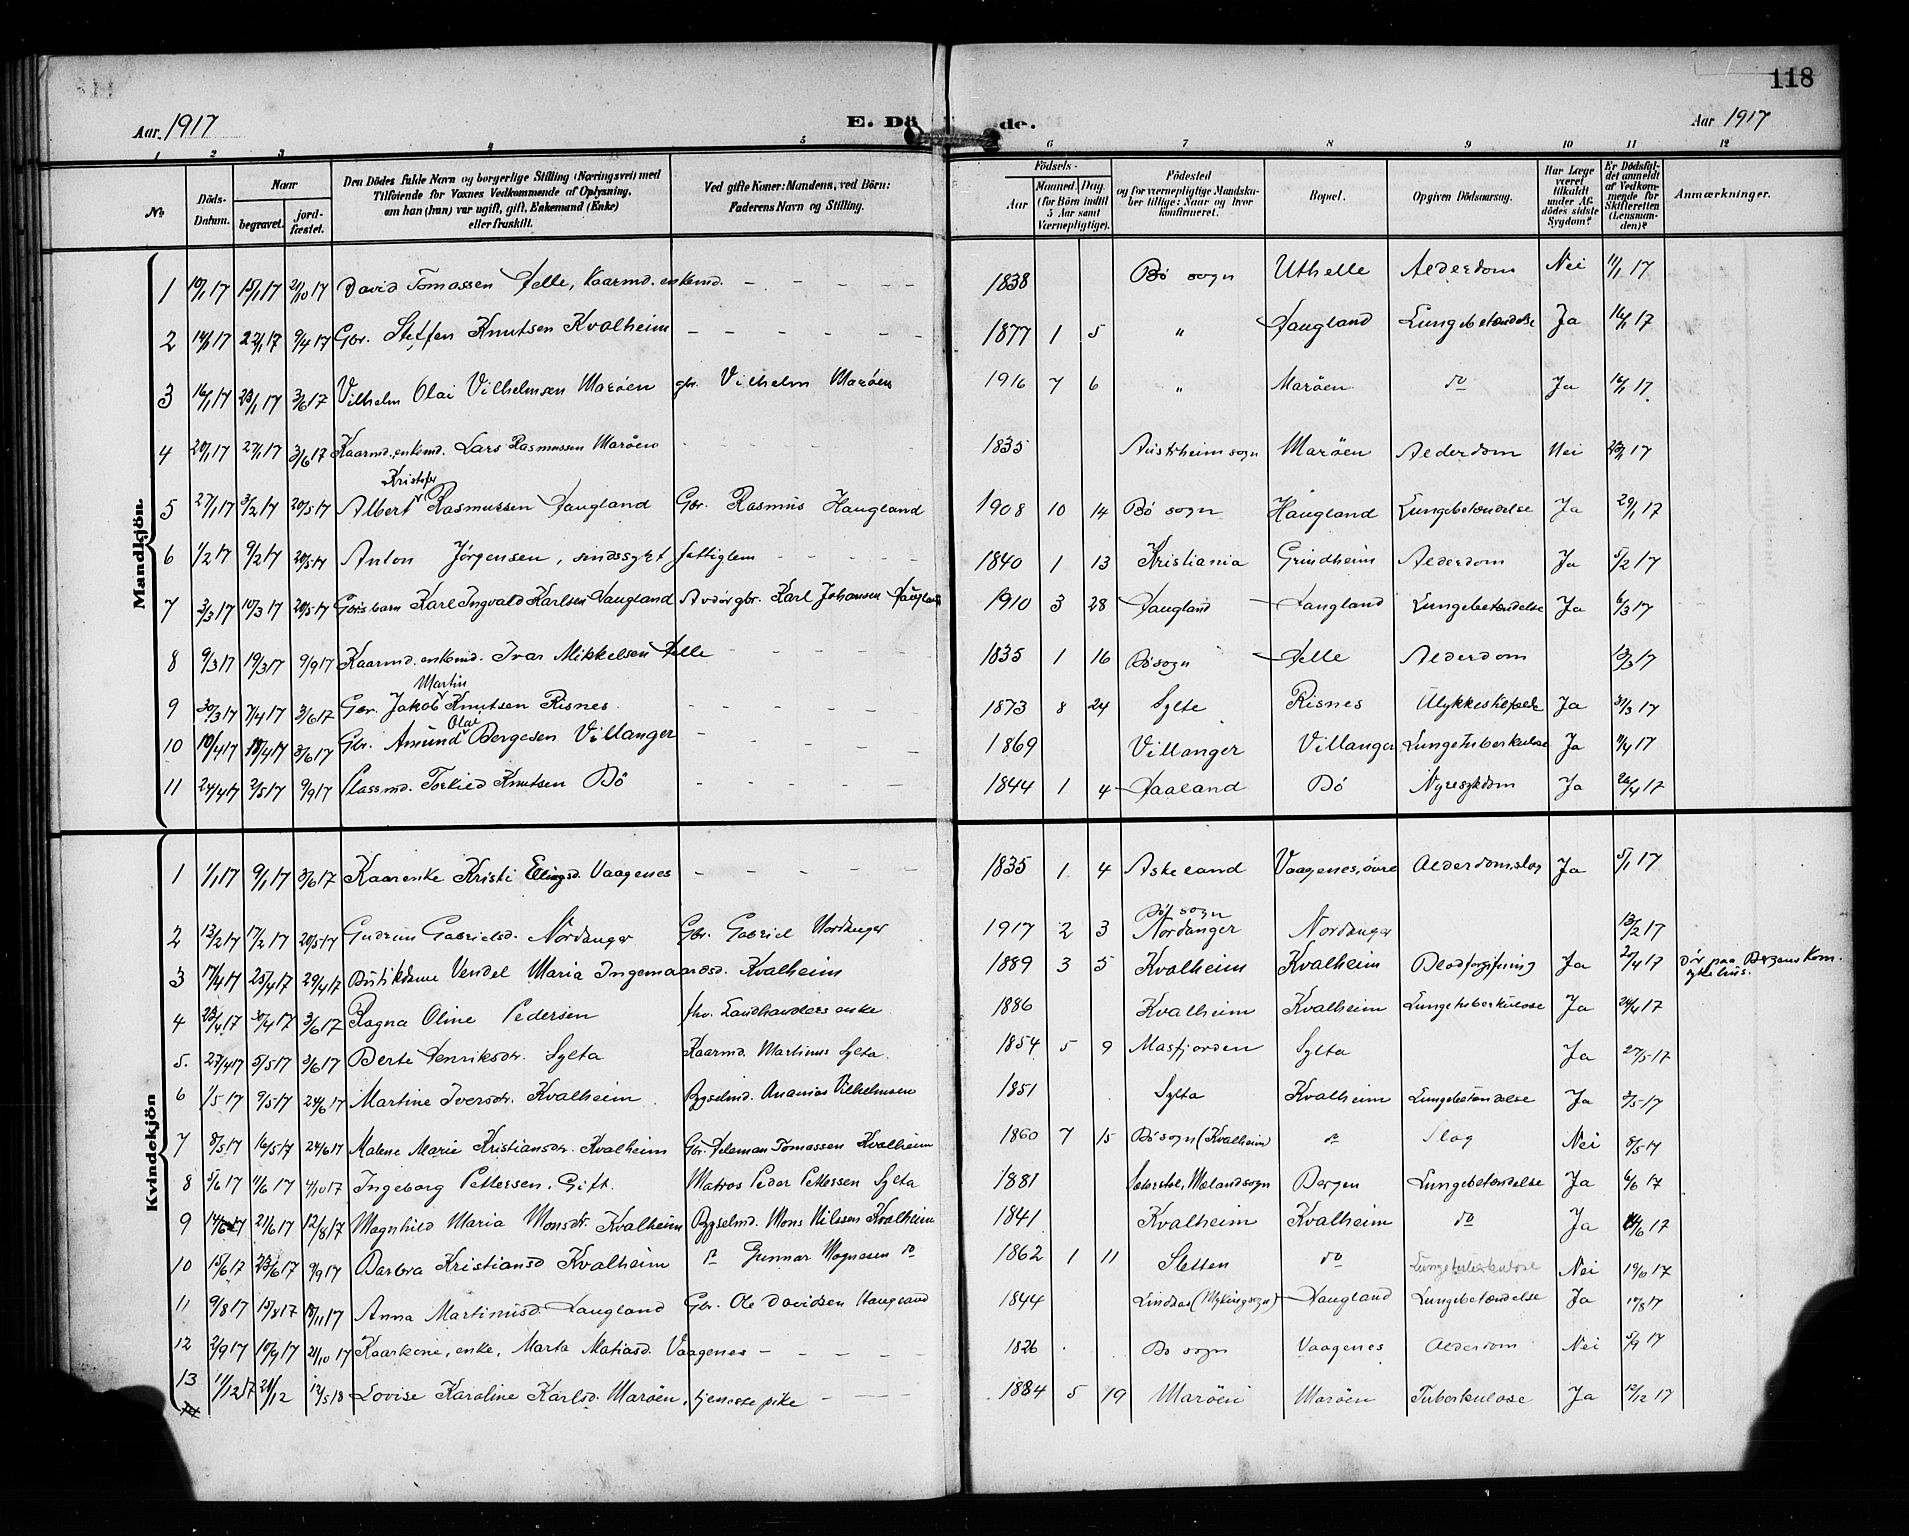 118
Aar 1917 E. Dö de. Aar 1917
1 2 3 4 5 6 7 8 9 10 11 12
No
Döds-Datum.
Naar
begravet.
jord-fæstet.
Den Dödes fulde Navn og borgerlige Stilling (Næringsvei) med Tilföiende for Voxnes Vedkommende af Oplysning, om han (hun) var ugift, gift, Enkemand (Enke) eller fraskilt.
Ved gifte Koner: Mandens, ved Börn: Faderens Navn og Stilling.
Födsels-
Aar
Maaned. Dag.
(for Börn indtil 5 Aar samt Værnepligtige).
Födested og for værnepligtige Mandskaber tillige: Naar og hvor konfirmeret.
Bopæl.
Opgiven Dödsaarsag.
Har Læge været tilkaldt under Afdödes sidste Sygdom?
Er Dödsfaldet anmeldt af Vedkommende for Skifteretten (Lensmanden)?
Anmærkninger.
Mandkjön.
1 10/1 17 15/1 17 21/10 17 David Tomassen Helle, Kaarmd. enkemd. - - - - - 1838 Bö sogn Uthelle Alderdom Nei 11/1 17
2 14/1 17 22/1 17 9/4 17 Gbr. Steffen Knutsen Kvalheim - - - - - - 1877 1 5 " Haugland Lungebetændelse Ja 16/1 17
3 16/1 17 23/1 17 3/6 17 Vilhelm Olai Vilhelmsen Maröen gbr. Vilhelm Maröen 1916 7 6 " Maröen do Ja 16/1 17
4 20/1 17 27/1 17 3/6 17 Kaarmd. enkemd. Lars Rasmussen Maröen - - - - - - 1835 Austrheim sogn Maröen Alderdom Nei 23/1 17
Kristofer
5 27/1 17 3/2 17 20/5 17 Albert Rasmussen Haugland Gbr. Rasmus Haugland 1908 10 14 Bö sogn Haugland Lungebetændelse Ja 29/1 17
6 1/2 17 9/2 17 20/5 17 Anton Jörgensen, sindssykt fattiglem - - - - 1840 1 13 Kristiania Grindheim Alderdom Ja 5/2 17
7 3/3 17 10/3 17 20/5 17 Karl Ingvald Karlsen Haugland gbr. Karl Johansen Haugland 1910 3 28 Haugland Haugland Lungebetændelse Ja 6/3 17
8 9/3 17 19/3 17 9/9 17 Kaarmd. enkemd. Ivar Mikkelsen Helle - - - - 1835 1 16 Bö sogn Helle Alderdom 13/3 17
Martin
9 30/3 17 7/4 17 3/6 17 Gbr. Jakob Knutsen Risnes - - - - - - 1873 8 24 Sylte Risnes Ulykkestilfælde Ja 31/3 17
Olai
10 10/4 17 18/4 17 3/6 17 Gbr. Amund Bergesen Villanger - - - - - 1869 Villanger Villanger Lungetuberkulose Ja 11/4 17
11 24/4 17 2/5 17 9/9 17 Plassmd. Torkild Knutsen Bö - - - - - - 1844 1 4 Haaland Bö Nyresykdom Ja 26/4 17
Kvindekjön
1 1/1 17 9/1 17 3/6 17 Kaarenke Kristi Ellingsd. Vaagenes - - - - - - 1835 1 4 Askeland Vaagenes, övre Alderdom, slag Ja 5/1 17
Bö sogn
2 13/2 17 17/2 17 20/5 17 Gudrun Gabrielsd. Nordanger Gbr. Gabriel Nordanger 1917 2 3 Nordanger Nordanger 13/2 17
3 17/4 17 25/4 17 29/4 17 Butikdame Vendel Maria Ingemaardsd. Kvalheim 1889 3 5 Kvalheim Kvalheim Blodforgiftning Ja 20/4 17 Dör paa Bergens Kom. sykehus.
4 23/4 17 30/4 17 3/6 17 Ragna Oline Pedersen fhv. Landhandlers enke 1886 Kvalheim Kvalheim Lungetuberkulose Ja 24/4 17
5. 27/4 17 5/5 17 3/6 17 Berte Henriksdtr. Sylta Kaarmd. Martinus Sylta. 1854 5 9 Masfjorden Sylta Ja 27/5 17
6 1/5 17 9/5 17 24/6 17 Martine Iversdtr. Kvalheim Bygselmd. Ananias Vilhelmsen 1851 Sylta Kvalheim Lungebetændelse Ja 3/5 17
7 8/5 17 16/5 17 24/6 17 Malene Marie Kristiansdtr. Kvalheim Gbr. Teleman Tomassen Kvalheim 1860 7 15 Bö sogn (Kvalheim) do Slag Nei 8/5 17
8 5/6 17 11/6 17 4/10 17 Ingeborg Pettersen. Gift. Matros Peder Pettersen Sylta 1881 Sæterstöl, Mælandsogn Bergen Lungebetændelse Ja 6/6 17
9 14/6 17 21/6 17 12/8 17 Magnhild Maria Monsdtr. Kvalheim Bygselmd. Mons Nilssen Kvalheim 1841 Kvalheim Kvalheim do Ja 14/6 17
10 15/6 17 23/6 17 9/9 17 Barbra Kristiansd Kvalheim do Gunnar Magnesen do 1862 1 11 Sletten do Lungetuberkulose Nei 19/6 17
11 9/8 17 15/8 17 18/11 17 Anna Martinusd. Haugland Gbr. Ole Davidsen Haugland 1844 Lindaas (Mykingsogn) Haugland Lungebetændelse Ja 10/8 17
12 2/9 17 10/9 17 21/10 17 Kaarkone, enke, Marta Matiasd. Vaagenes - - - - - 1826 Bö sogn Vaagenes Alderdom Nei 5/9 17
13 11/12 17 21/12 12/5 18 Lovise Karoline Karlsd. Maröen, tjenestepike - - - - 1884 5 19 Maröen Maröen Tuberkulose Ja 12/12 17